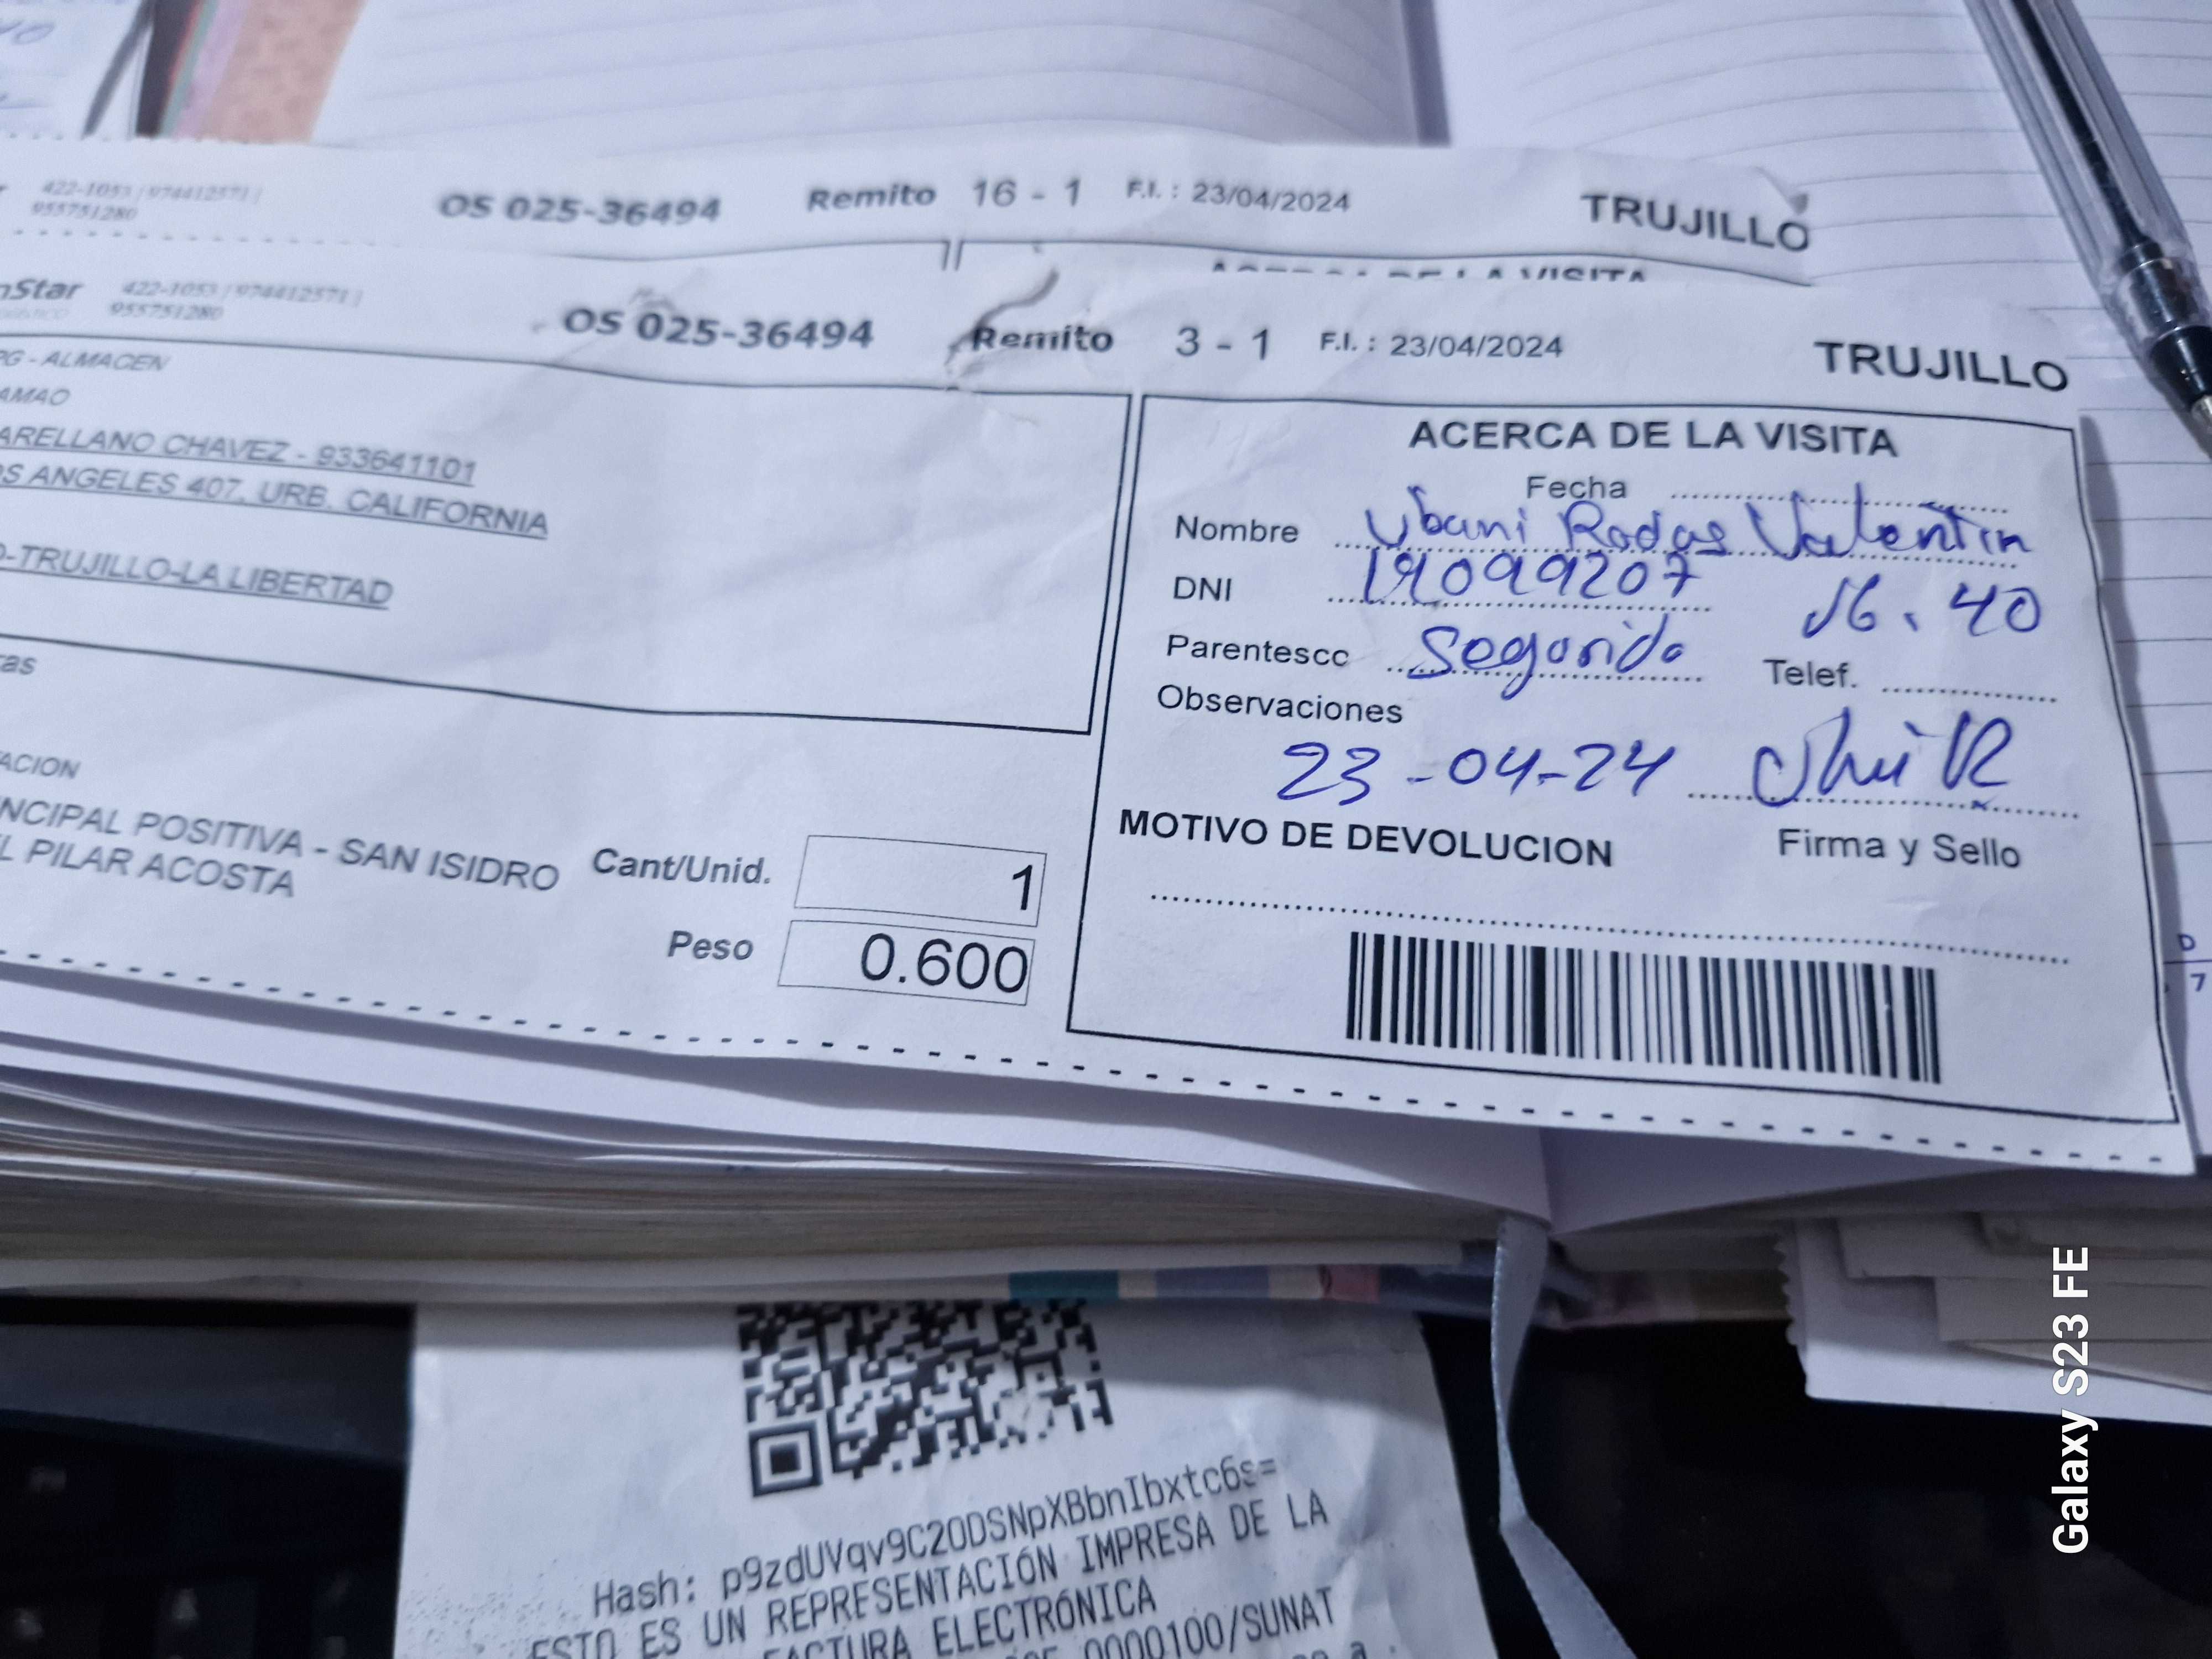 422-1053 | 974412571 |
955751280
OS 025-36494 Remito 16 - 1 F.I. : 23/04/2024 TRUJILLO
ACERCA DE LA VISITA
nStar 422-1053 | 974412571 |
955751280
OS 025-36494 Remito 3 - 1 F.I. : 23/04/2024 TRUJILLO
PG - ALMACEN
AMAO
ARELLANO CHAVEZ - 933641101
OS ANGELES 407. URB. CALIFORNIA
O-TRUJILLO-LA LIBERTAD
ras
ACION
INCIPAL POSITIVA - SAN ISIDRO
EL PILAR ACOSTA
Cant/Unid. 1
Peso 0.600
ACERCA DE LA VISITA
Fecha
Nombre Ubani Rodas Valentin
DNI 19099207 16.40
Parentesco Segurida
Telef.
Observaciones
23-04-24
MOTIVO DE DEVOLUCION Firma y Sello
Hash: p9zdUVqv9C2ODSNpXBbnIbxtc6s=
ESTO ES UN REPRESENTACIÓN IMPRESA DE LA
FACTURA ELECTRÓNICA
0000100/SUNAT
Galaxy S23 FE